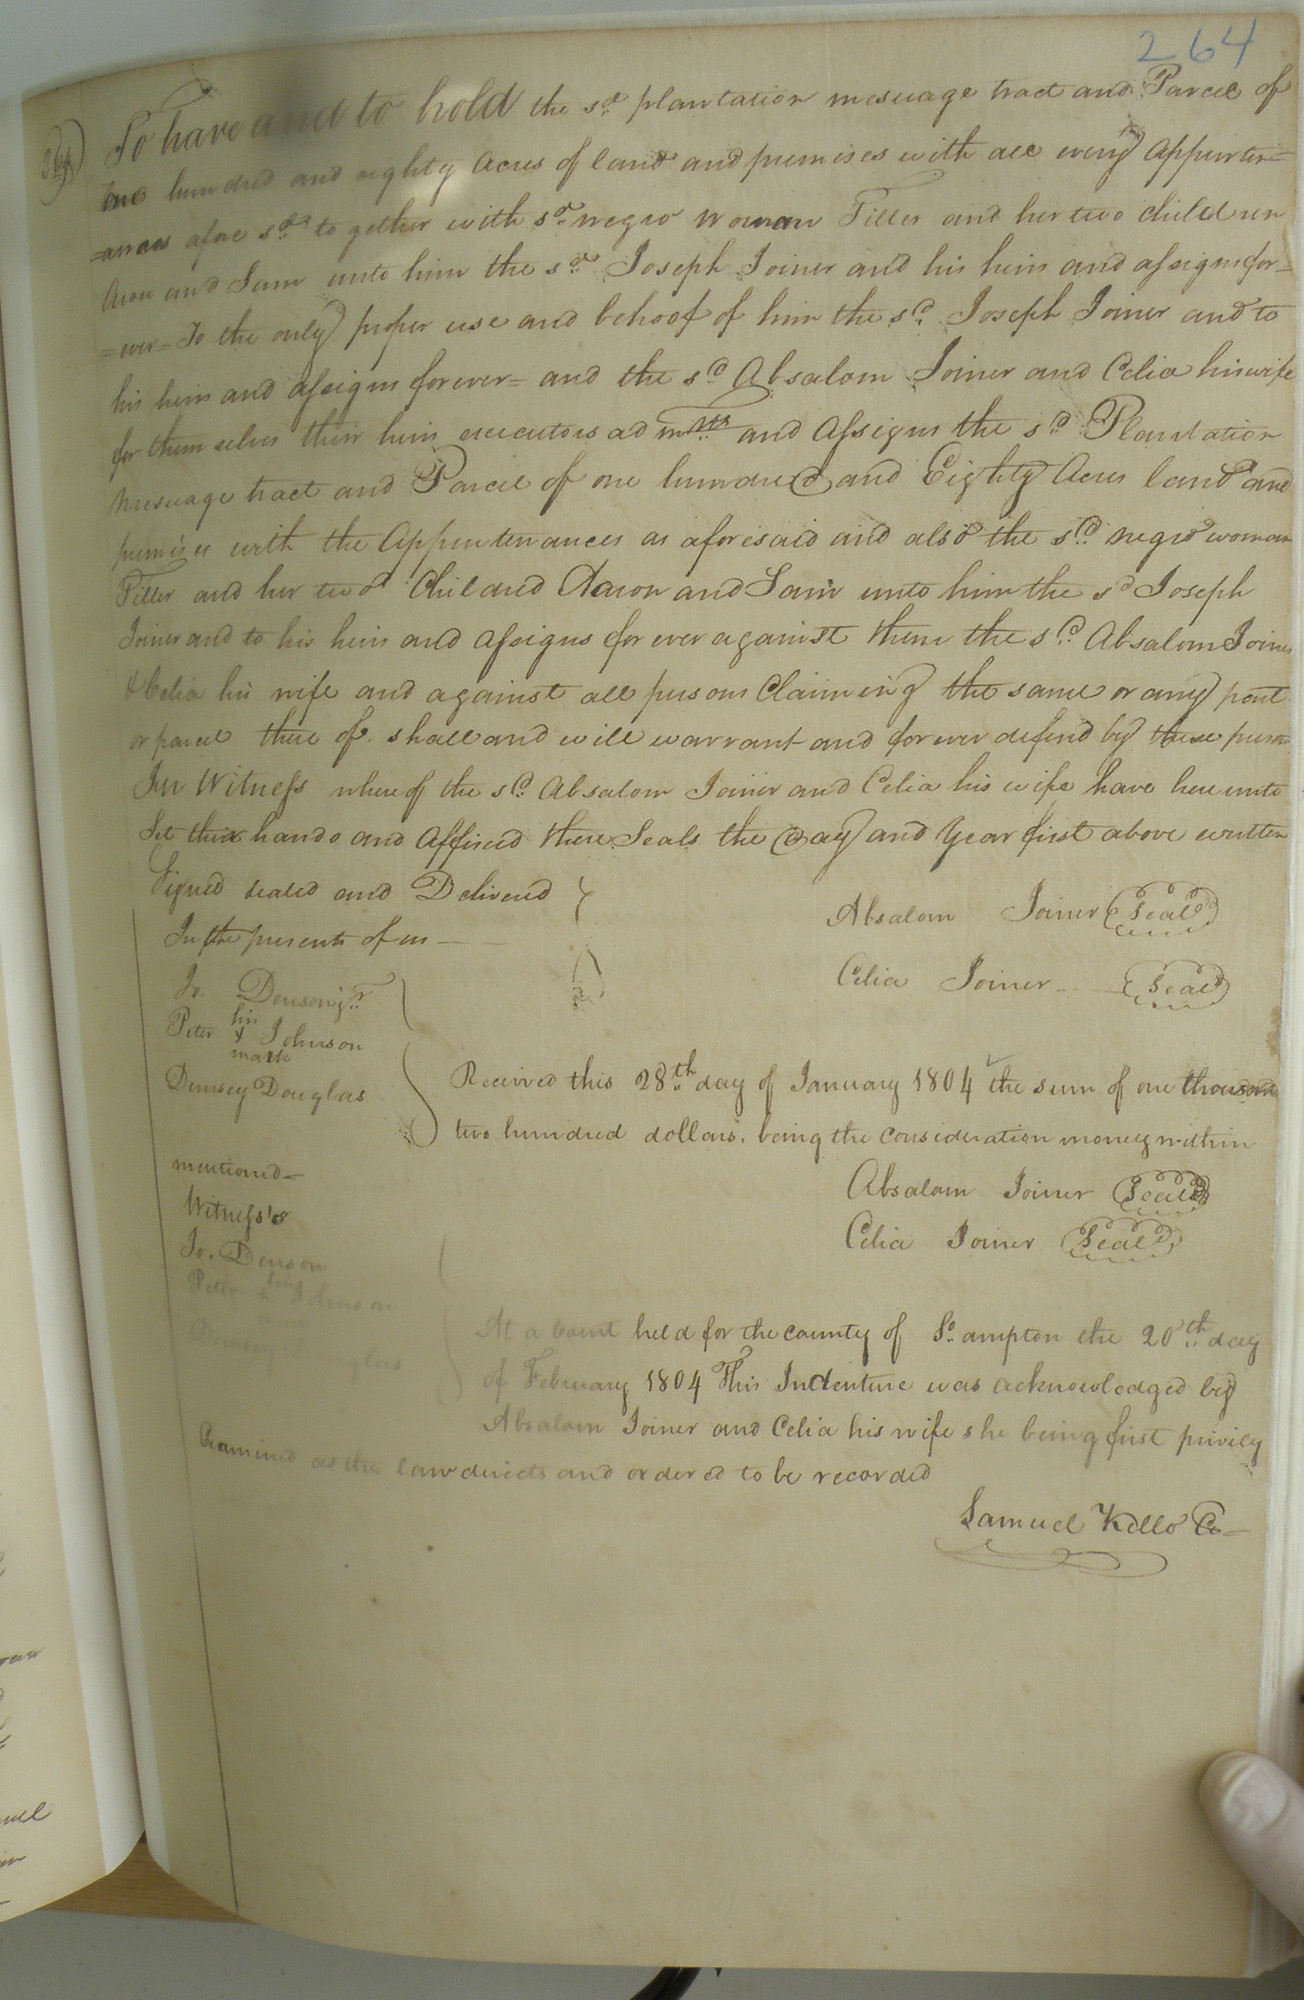 264
264)
To have and to hold the sd plantation mesuage tract and Parcel of
one hundred and eighty Acres of land and premises with all every Appurten=
=ances afore sd to gether with sd negro woman Tiller and her two children
Aron and Sam unto him the sd Joseph Joiner and his heirs and assigns for=
=ever= To the only proper use and behoof of him the sd Joseph Joiner and to
his heirs and assigns forever= and the sd Absalom Joiner and Celia his wife
for them selves their heirs executors admrs and Assigns the sd Plantation
Mesuage tract and Parcel of one hundred and Eighty Acres land and
premises with the Appurtenances as aforesaid and also the sd negro woman
Tiller and her two Childred Aaron and Sam unto him the sd Joseph
Joiner and to his heirs and assigns for ever against them the sd Absalom Joiner
& Celia his wife and against all persons Claiming the same or any part
or parcel there of shall and will warrant and forever defend by these
In Witness where of the sd Absalom Joiner and Celia his wife have here unto
Set their hands and Affixed there Seals the Day and Year first above written
Signed sealed and Delivered
In the presents of us
Absalom Joiner Seal
Celia Joiner Seal
Jo. Denson jr
his
Peter x Johnson
mark
Demsey Douglas
Received this 28th day of January 1804 the sum of one thousand
two hundred dollars. being the consideration money within
mentioned=
Absalom Joiner Seal
Celia Joiner Seal
Witness's
Jo. Denson
Peter his Johnson
Demsey Douglas
At a Court held for the county of So ampton the 20th day
of February 1804 This Indenture was acknowledged by
Absalom Joiner and Celia his wife she being first privily
Examined as the law directs and ordered to be recorded
Samuel Kello Cs